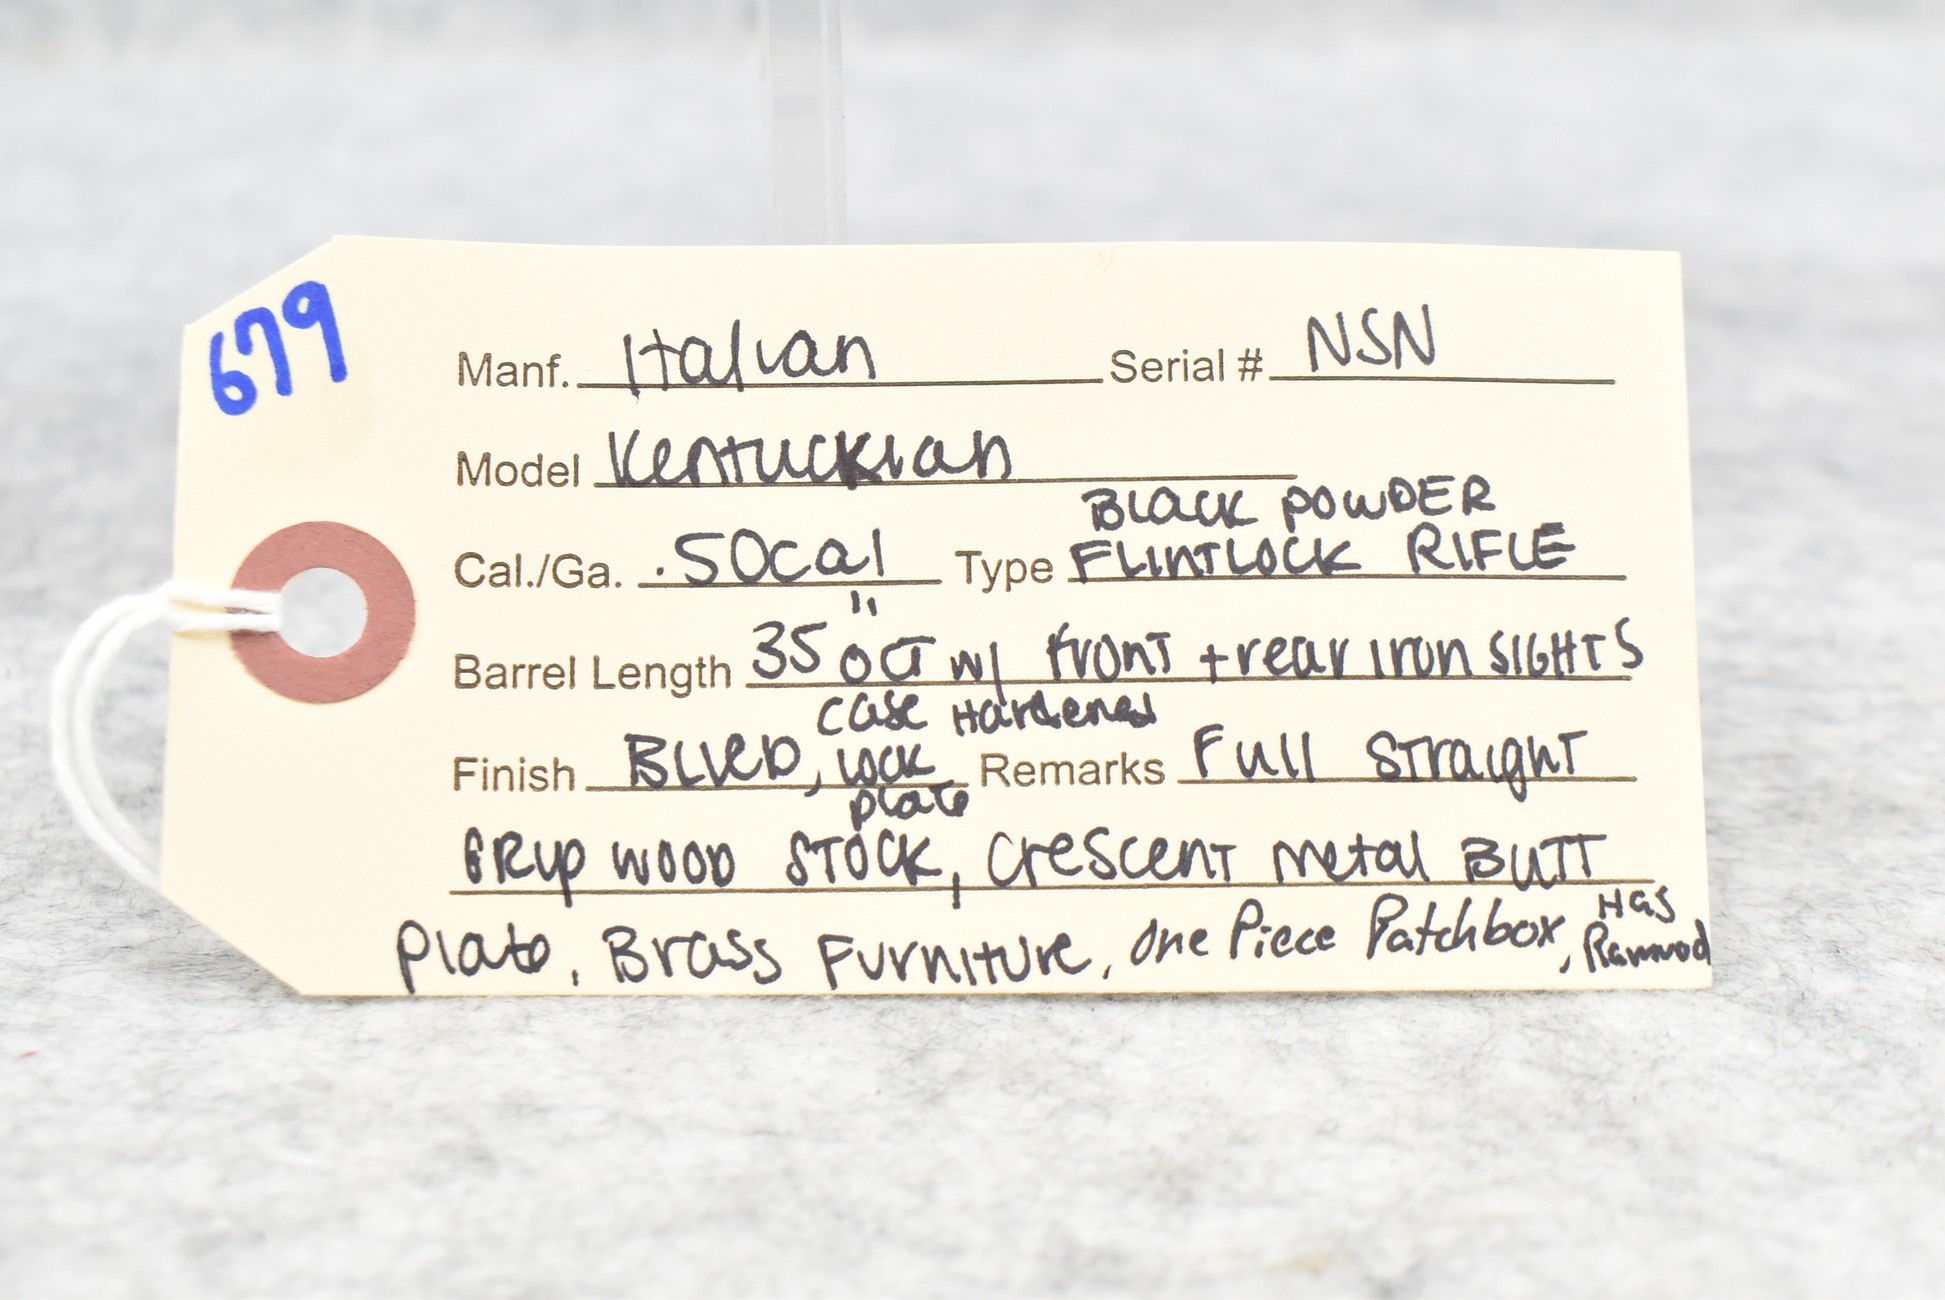 679
Manf. Italian Serial # NSN
Model Kentuckian
BLACK POWDER
Cal./Ga. .50cal Type FLINTLOCK RIFLE
Barrel Length 35" OCT w/ front + rear iron SIGHTS
case Hardened
Finish BLUED, lock Remarks Full Straight
plate
GRIP WOOD STOCK, Crescent metal BUTT
Plate, Brass Furniture, One Piece Patchbox, Has
Ramrod